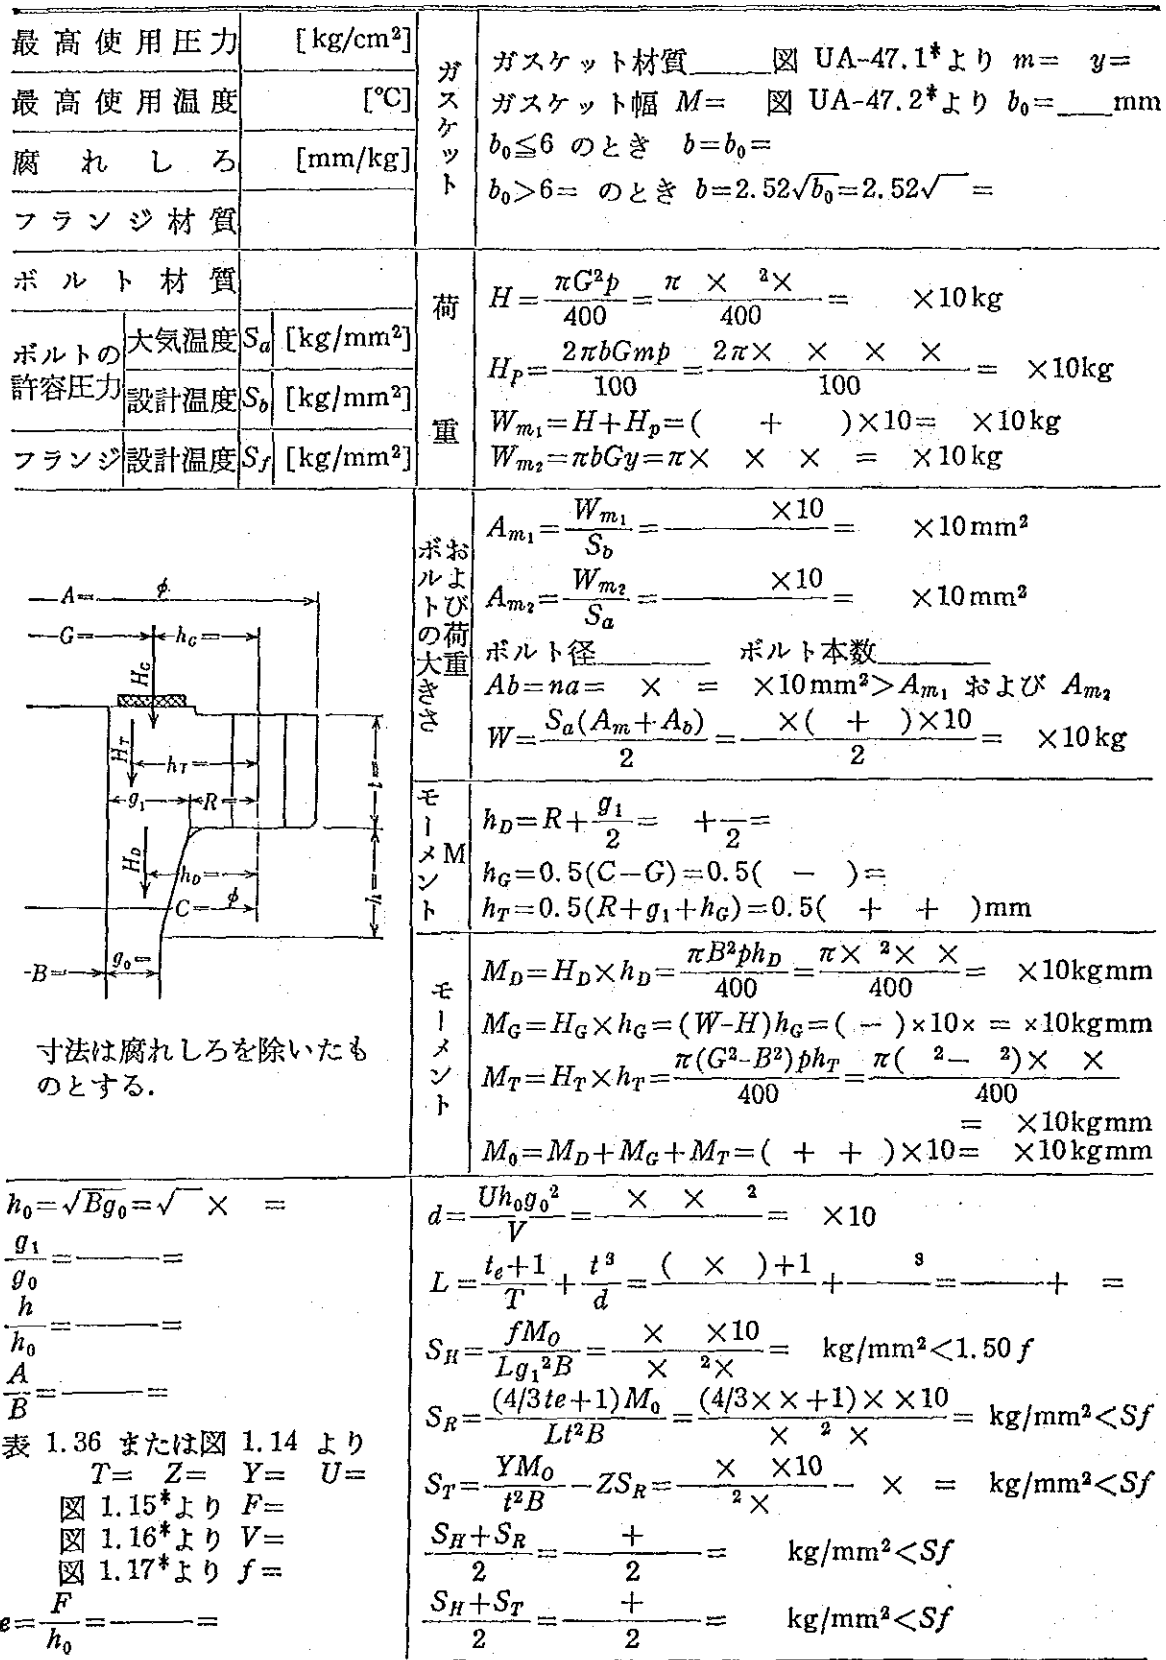 最高使用圧力 [kg/cm²]
最高使用温度 [℃]
腐れしろ [mm/kg]
フランジ材質
ボルト材質
ボルトの許容圧力 大気温度 Sa [kg/mm²]
設計温度 Sb [kg/mm²]
フランジ 設計温度 Sf [kg/mm²]
ガスケット
ガスケット材質____図 UA-47.1*より m= y=
ガスケット幅 M= 図 UA-47.2*より b₀=___mm
b₀≦6 のとき b=b₀=
b₀>6= のとき b=2.52√b₀=2.52√ =
荷重
H=πG²p/400=π × ²×/400= ×10kg
H_P=2πbGmp/100=2π× × × ×/100= ×10kg
W_m₁=H+H_p=( + )×10= ×10kg
W_m₂=πbGy=π× × × = ×10kg
ボルトの大きさおよび荷重
A_m₁=W_m₁/S_b= ×10/ = ×10mm²
A_m₂=W_m₂/S_a= ×10/ = ×10mm²
ボルト径______ ボルト本数______
Ab=na= × = ×10mm²>A_m₁ および A_m₂
W=S_a(A_m+A_b)/2= ×( + )×10/2= ×10kg
モーメント M
h_D=R+g₁/2= + /2=
h_G=0.5(C−G)=0.5( − )=
h_T=0.5(R+g₁+h_G)=0.5( + + )mm
モーメント
M_D=H_D×h_D=πB²ph_D/400=π× ²× ×/400= ×10kgmm
M_G=H_G×h_G=(W-H)h_G=( − )×10× = ×10kgmm
M_T=H_T×h_T=π(G²-B²)ph_T/400=π( ²− ²)× ×/400
= ×10kgmm
M₀=M_D+M_G+M_T=( + + )×10= ×10kgmm
A= φ
G= h_G=
H_G
H_T
h_T=
g₁ R=
t=
H_D
h_D=
C= φ
h=
B= g₀=
寸法は腐れしろを除いたも
のとする.
h₀=√Bg₀=√ × =
g₁/g₀= =
h/h₀= =
A/B= =
表 1.36 または図 1.14 より
T= Z= Y= U=
図 1.15*より F=
図 1.16*より V=
図 1.17*より f=
e=F/h₀= =
d=Uh₀g₀²/V= × × ²/ = ×10
L=te+1/T+t³/d=( × )+1/ + ³/ = + =
S_H=fM_O/Lg₁²B= × ×10/ × ²× = kg/mm²<1.50f
S_R=(4/3te+1)M₀/Lt²B=(4/3××+1)× ×10/ × ² × = kg/mm²<Sf
S_T=YM_O/t²B−ZS_R= × ×10/ ²× − × = kg/mm²<Sf
S_H+S_R/2= + /2= kg/mm²<Sf
S_H+S_T/2= + /2= kg/mm²<Sf